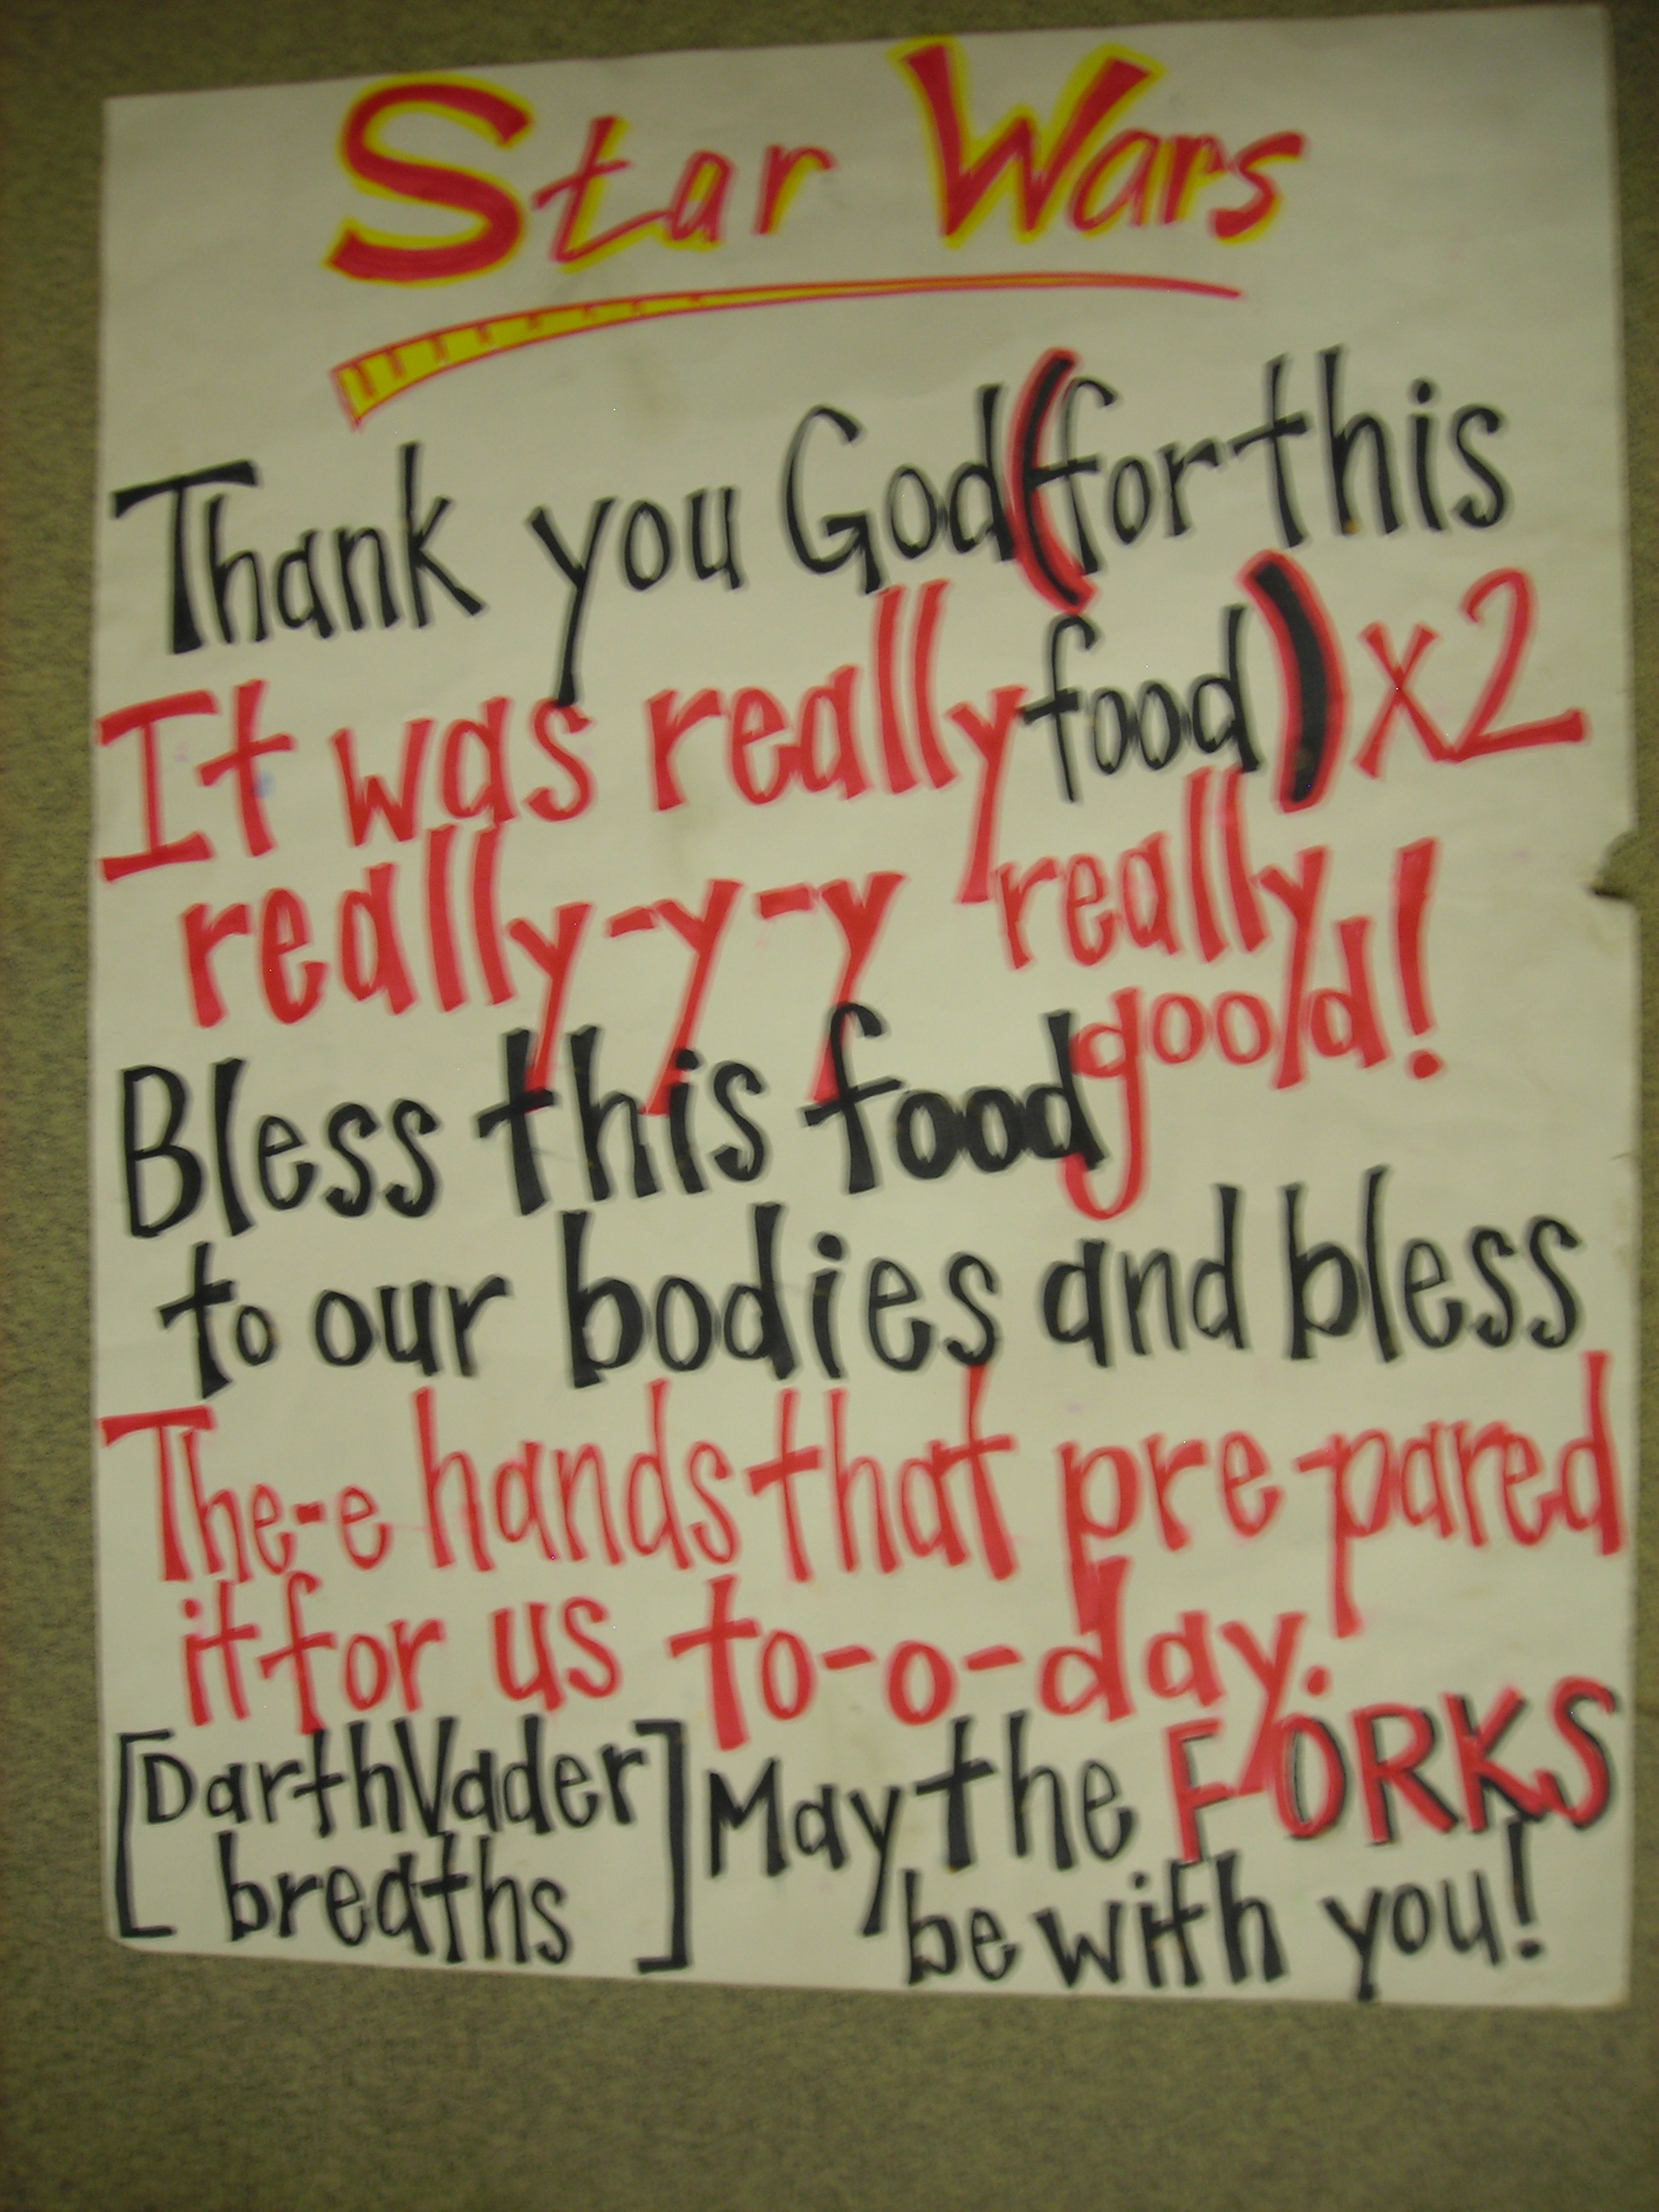 Star Wars
Thank you God (for this
food) x2
It was really
really-y-y really
good!
Bless this food
to our bodies and bless
The-e hands that pre-pared
it for us to-o-day.
[Darth Vader
breaths]
May the FORKS
be with you!